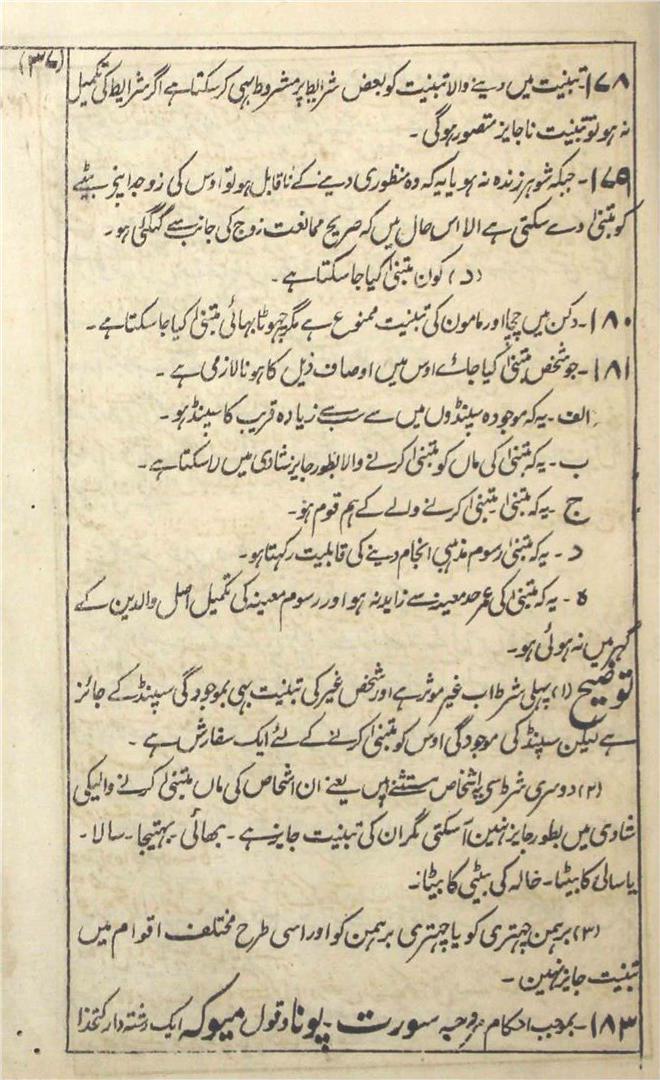 (۳۷)
۱۷۸۔ تبنیت میں دینے والا تبنیت کو بعض شرایط پر مشروط بہی کر سکتا ہے اگر شرایط کی تکمیل
نہ ہو تو تبنیت ناجایز متصور ہوگی ۔
۱۷۹۔ جبکہ شوہر زندہ نہ ہو یا یہ کہ وہ منظوری دینے کے ناقابل ہو تو اوس کی زوجہ اپنے بیٹے
کو متبنیٰ دے سکتی ہے الا اس حال میں کہ صریح ممانعت زوج کی جانب سے کیگئی ہو ۔
(د) کون متبنیٰ کیا جا سکتا ہے ۔
۱۸۰۔ دکن میں چچا اور مامون کی تبنیت ممنوع ہے مگر چہوٹا بہائی متبنیٰ کیا جا سکتا ہے ۔
۱۸۱۔ جو شخص متبنیٰ کیا جائے اوس میں اوصاف ذیل کا ہونا لازمی ہے ۔
الف ۔ یہ کہ موجودہ سپنڈوں میں سے سب سے زیادہ قریب کا سپنڈ ہو ۔
ب ۔ یہ کہ متبنیٰ کی ماں کو متبنیٰ کرنے والا بطور جایز شادی میں لا سکتا ہے ۔
ج ۔ یہ کہ متبنیٰ متبنیٰ کرنے والے کے ہم قوم ہو ۔
د ۔ یہ کہ متبنیٰ رسوم مذہبی انجام دینے کی قابلیت رکہتا ہو ۔
ہ ۔ یہ کہ متبنیٰ کی عمر حد معینہ سے زاید نہ ہو اور رسوم معینہ کی تکمیل اصل والدین کے
گہر میں نہ ہوئی ہو ۔
توضیح (۱) پہلی شرط اب غیر موثر ہے اور شخص غیر کی تبنیت بہی بموجودگی سپنڈ کے جائز
ہے لیکن سپنڈ کی موجودگی اوس کو متبنیٰ کرنے کے لئے ایک سفارش ہے ۔
(۲) دوسری شرط سے یہ اشخاص مستثنے ہیں یعنے ان اشخاص کی ماں متبنیٰ کرنے والیکی
شادی میں بطور جایز نہین آ سکتی مگر ان کی تبنیت جایز ہے ۔ بھائی ۔ بہتیجا ۔ سالا ۔
یا سالی کا بیٹا ۔ خالہ کی بیٹی کا بیٹا ۔
(۳) برہمن چہتری کو یا چہتری برہمن کو اور اسی طرح مختلف اقوام میں
تبنیت جایز نہین ۔
۱۸۳۔ بموجب احکام مروجہ سورت ۔ پونا و قول میوکہ ایک رشتہ دار کتخدا